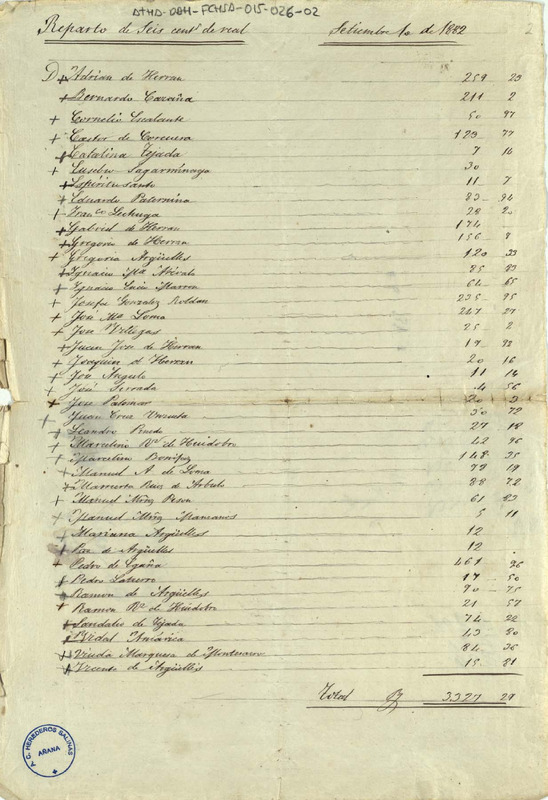 ATHA-DAH-FGHSA-015-026-02
Reparto de Seis cent.s de real Setiembre 10 de 1882
2
D. Adrian de Herran 259 23
Bernardo Cazaña 211 2
Cornelio Escalante 50 97
Castor de Corcuera 129 77
Catalina Tejada 7 14
Eusebio Sagarmínaga 30
Espíritu Santo 11 7
Eduardo Paternina 83 94
Fran.co Lechuga 28 20
Gabriel de Herran 174
Gregorio de Herran 156 8
Gregoria Argüelles 120 33
Ignacio M.a 85 83
Ignacio Marron 64 65
Josefa Gonzalez Roldan 235 95
José M.a Loma 247 27
José Villegas 25 2
Juan José de Herran 17 92
Joaquin d Herran 20 16
José Angulo 11 14
José Serrada 4 56
José Palomar 20 3
Juan Cruz Unzueta 30 79
Leandro Pinedo 27 18
Marcelino R.z de Huidobro 42 96
Marcelina Bonifaz 148 35
Manuel A. de Loma 79 19
Mamerta Ruiz de Arbulo 88 72
Manuel Miñz Peson 61 83
Manuel Miñz Manzanos 5 11
Mariana Argüelles 12
Paz de Argüelles 12
Pedro de Egaña 461 36
Pedro Laherro 17 50
Ramon de Argüelles 70 75
Ramon R.z de Huidobro 21 57
Sandalio de Tejada 74 22
Vidal America 43 80
Viuda Marquesa de Montenuevo 84 36
Vicenta de Argüelles 15 81
Total 3327 29
G. HEREDEROS SALINAS
AÑANA